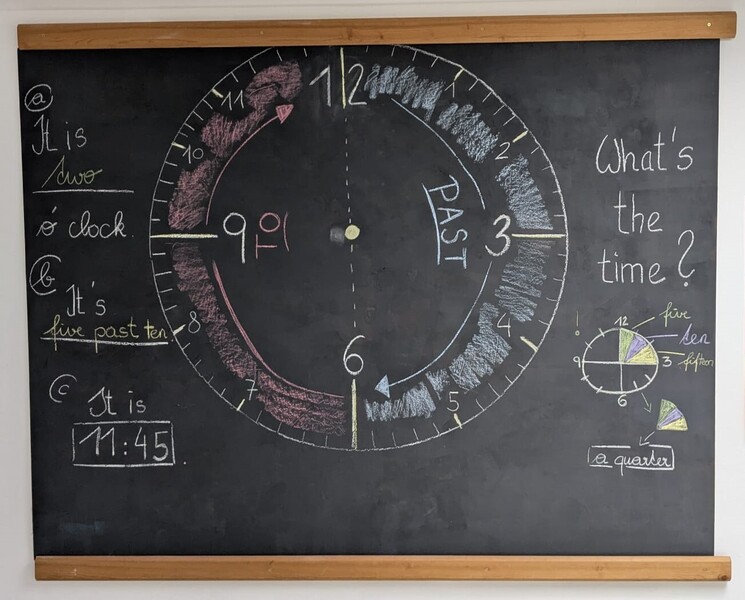 a
It is
two
o' clock.
b
It's
five past ten
c
It is
11:45.
12
1
2
3
4
5
6
7
8
9
10
11
PAST
TO
What's
the
time?
!
12
3
6
9
five
ten
fifteen
a quarter